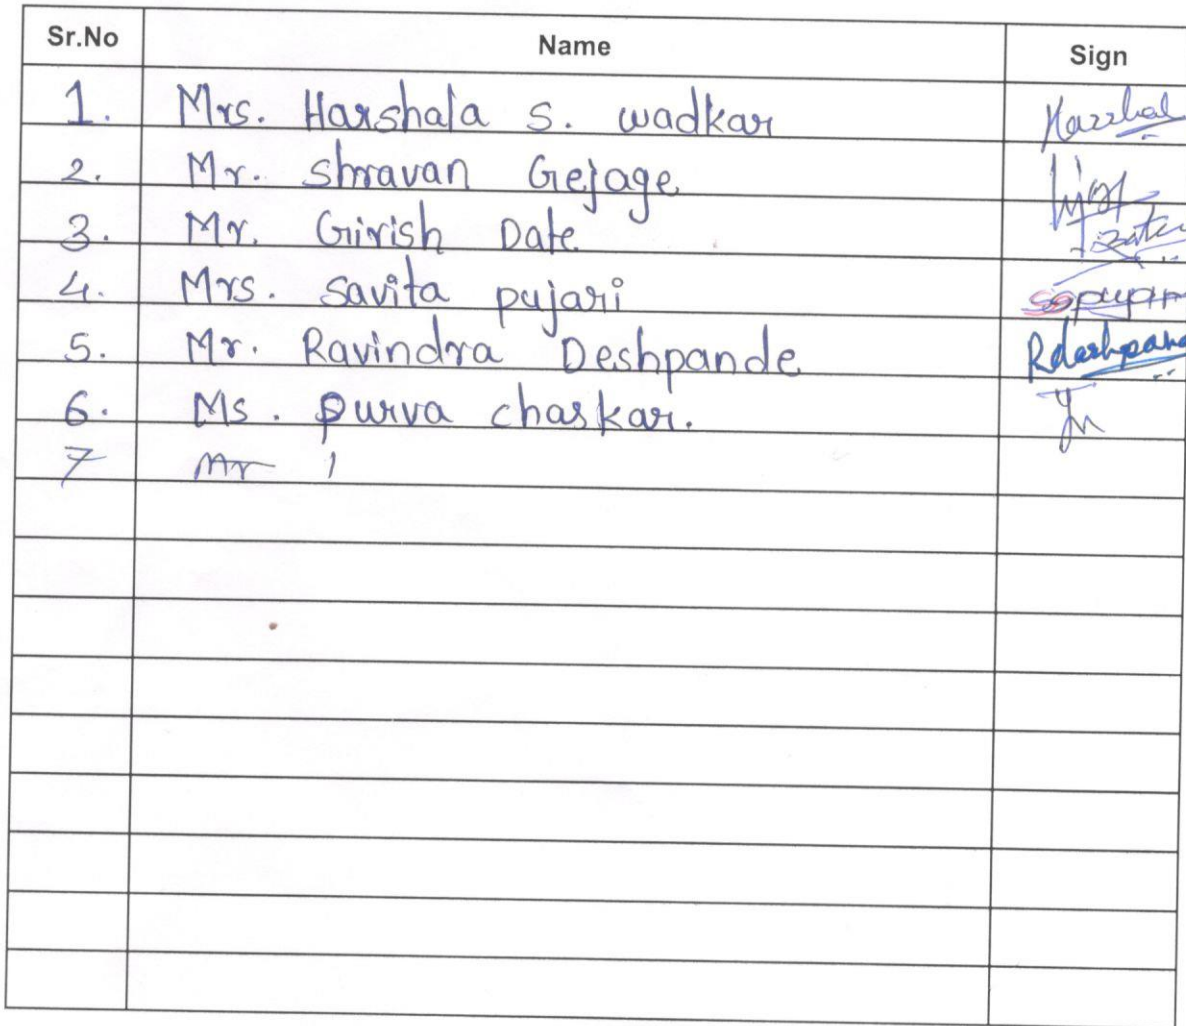 Sr.No Name Sign
1. Mrs. Harshala S. wadkar Harshal
2. Mr. Shravan Gejage
3. Mr. Girish Date
4. Mrs. Savita pujari
5. Mr. Ravindra Deshpande Rdeshpande
6. Ms. Purva chaskar.
7 Mr